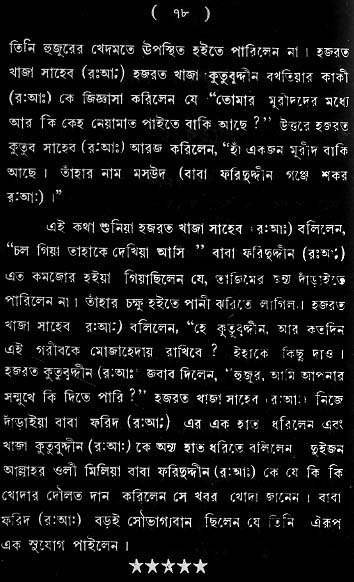 ( ৭৮ )
তিনি হুজুরের খেদমতে উপস্থিত হইতে পারিলেন না । হজরত
খাজা সাহেব (রঃআঃ) হজরত খাজা কুতুবুদ্দীন বখতিয়ার কাকী
(র:আঃ) কে জিজ্ঞাসা করিলেন যে “তোমার মুরীদদের মধ্যে
আর কি কেহ নেয়ামাত পাইতে বাকি আছে ?” উত্তরে হজরত
কুতুব সাহেব (র:আঃ) আরজ করিলেন, “হাঁ একজন মুরীদ বাকি
আছে । তাঁহার নাম মসউদ (বাবা ফরিছুদ্দীন গঞ্জে শকর
র:আ:) ।”
এই কথা শুনিয়া হজরত খাজা সাহেব র:আ:) বলিলেন,
“চল গিয়া তাহাকে দেখিয়া আসি ” বাবা ফরিছুদ্দীন (রঃআ:)
এত কমজোর হইয়া গিয়াছিলেন যে, তাজিমের জন্য দাঁড়াইতে
পারিলেন না । তাঁহার চক্ষু হইতে পানী ঝরিতে লাগিল । হজরত
খাজা সাহেব র:আ:) বলিলেন, “হে কুতুবুদ্দীন, আর কতদিন
এই গরীবকে মোজাহেদায় রাখিবে ? ইহাকে কিছু দাও ।
হজরত কুতুবুদ্দীন (র:আঃ জবাব দিলেন, “হুজুর, আমি আপনার
সন্মুখে কি দিতে পারি ?” হজরত খাজা সাহেব র:আঃ) নিজে
দাঁড়াইয়া বাবা ফরিদ (র:আ:) এর এক হাত ধরিলেন এবং
খাজা কুতুবুদ্দীন (র:আ:) কে অন্য হাত ধরিতে বলিলেন দুইজন
আল্লাহর ওলী মিলিয়া বাবা ফরিছুদ্দীন (র:আঃ) কে যে কি কি
খোদার দৌলত দান করিলেন সে খবর খোদা জানেন । বাবা
ফরিদ (র:আ:) বড়ই সৌভাগ্যবান ছিলেন যে তিনি ঐরূপ
এক সুযোগ পাইলেন ।
★★★★★